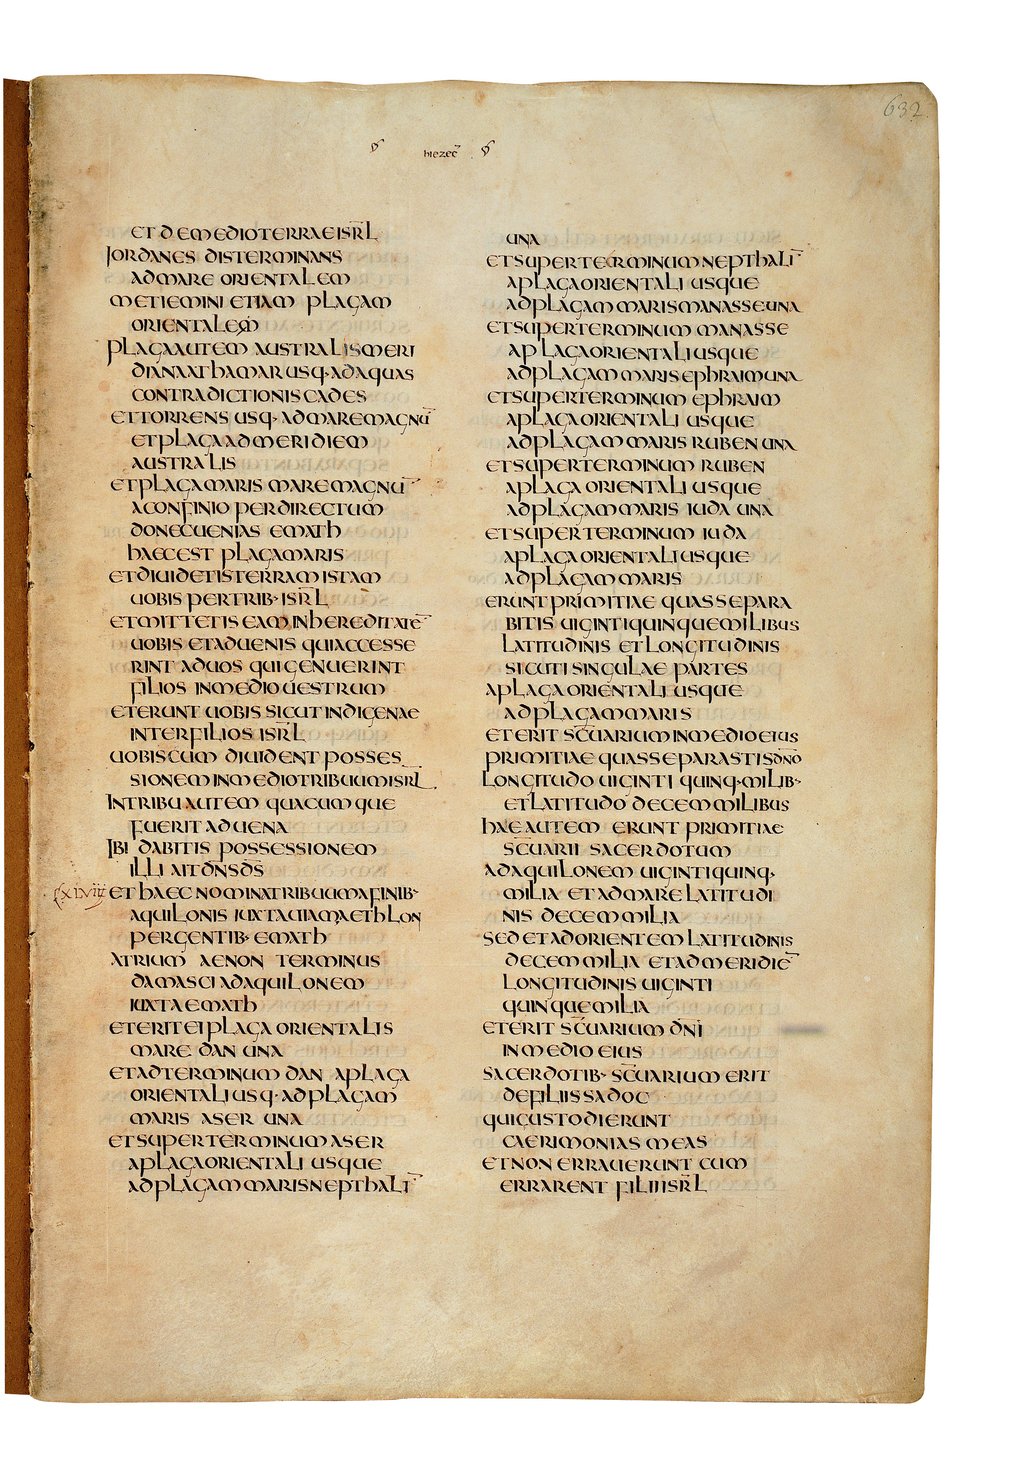 632
hiezec̄
ET DEMEDIO TERRAE ISRL̄
IORDANES DISTERMINANS
AD MARE ORIENTALEM
METIEMINI ETIAM PLAGAM
ORIENTALEM
PLAGA AUTEM AUSTRALIS MERI
DIANA A THAMAR USQ· AD AQUAS
CONTRADICTIONIS CADES
ET TORRENS USQ· AD MARE MAGNŪ
ET PLAGA AD MERIDIEM
AUSTRALIS
ET PLAGA MARIS MARE MAGNŪ
A CONFINIO PER DIRECTUM
DONEC UENIAS EMATH
HAEC EST PLAGA MARIS
ET DIUIDETIS TERRAM ISTAM
UOBIS PER TRIB· ISRL̄
ET MITTETIS EAM IN HEREDITATĒ
UOBIS ET ADUENIS QUI ACCESSE
RINT AD UOS QUI GENUERINT
FILIOS IN MEDIO UESTRUM
ET ERUNT UOBIS SICUT INDIGENAE
INTER FILIOS ISRL̄
UOBISCUM DIUIDENT POSSES
SIONEM IN MEDIO TRIBUUM ISRL̄
IN TRIBU AUTEM QUACUMQUE
FUERIT ADUENA
IBI DABITIS POSSESSIONEM
ILLI AIT DN̄S DS̄
XLVIII ET HAEC NOMINA TRIBUUM A FINIB·
AQUILONIS IUXTA UIAM AETHLON
PERGENTIB· EMATH
ATRIUM AENON TERMINUS
DAMASCI AD AQUILONEM
IUXTA EMATH
ET ERIT EI PLAGA ORIENTALIS
MARE DAN UNA
ET AD TERMINUM DAN A PLAGA
ORIENTALI USQ· AD PLAGAM
MARIS ASER UNA
ET SUPER TERMINUM ASER
A PLAGA ORIENTALI USQUE
AD PLAGAM MARIS NEPTHALĪ
UNA
ET SUPER TERMINUM NEPTHALĪ
A PLAGA ORIENTALI USQUE
AD PLAGAM MARIS MANASSE UNA
ET SUPER TERMINUM MANASSE
A PLAGA ORIENTALI USQUE
AD PLAGAM MARIS EPHRAIM UNA
ET SUPER TERMINUM EPHRAIM
A PLAGA ORIENTALI USQUE
AD PLAGAM MARIS RUBEN UNA
ET SUPER TERMINUM RUBEN
A PLAGA ORIENTALI USQUE
AD PLAGAM MARIS IUDA UNA
ET SUPER TERMINUM IUDA
A PLAGA ORIENTALI USQUE
AD PLAGAM MARIS
ERUNT PRIMITIAE QUAS SEPARA
BITIS UIGINTI QUINQUE MILIBUS
LATITUDINIS ET LONGITUDINIS
SICUTI SINGULAE PARTES
A PLAGA ORIENTALI USQUE
AD PLAGAM MARIS
ET ERIT SC̄UARIUM IN MEDIO EIUS
PRIMITIAE QUAS SEPARASTIS DN̄O
LONGITUDO UIGINTI QUINQ· MILIB·
ET LATITUDO DECEM MILIBUS
HAE AUTEM ERUNT PRIMITIAE
SC̄UARII SACERDOTUM
AD AQUILONEM UIGINTI QUINQ·
MILIA ET AD MARE LATITUDI
NIS DECEM MILIA
SED ET AD ORIENTEM LATITUDINIS
DECEM MILIA ET AD MERIDIĒ
LONGITUDINIS UIGINTI
QUINQUE MILIA
ET ERIT SC̄UARIUM DN̄I
IN MEDIO EIUS
SACERDOTIB· SC̄UARIUM ERIT
DE FILIIS SADOC
QUI CUSTODIERUNT
CAERIMONIAS MEAS
ET NON ERRAUERUNT CUM
ERRARENT FILII ISRL̄